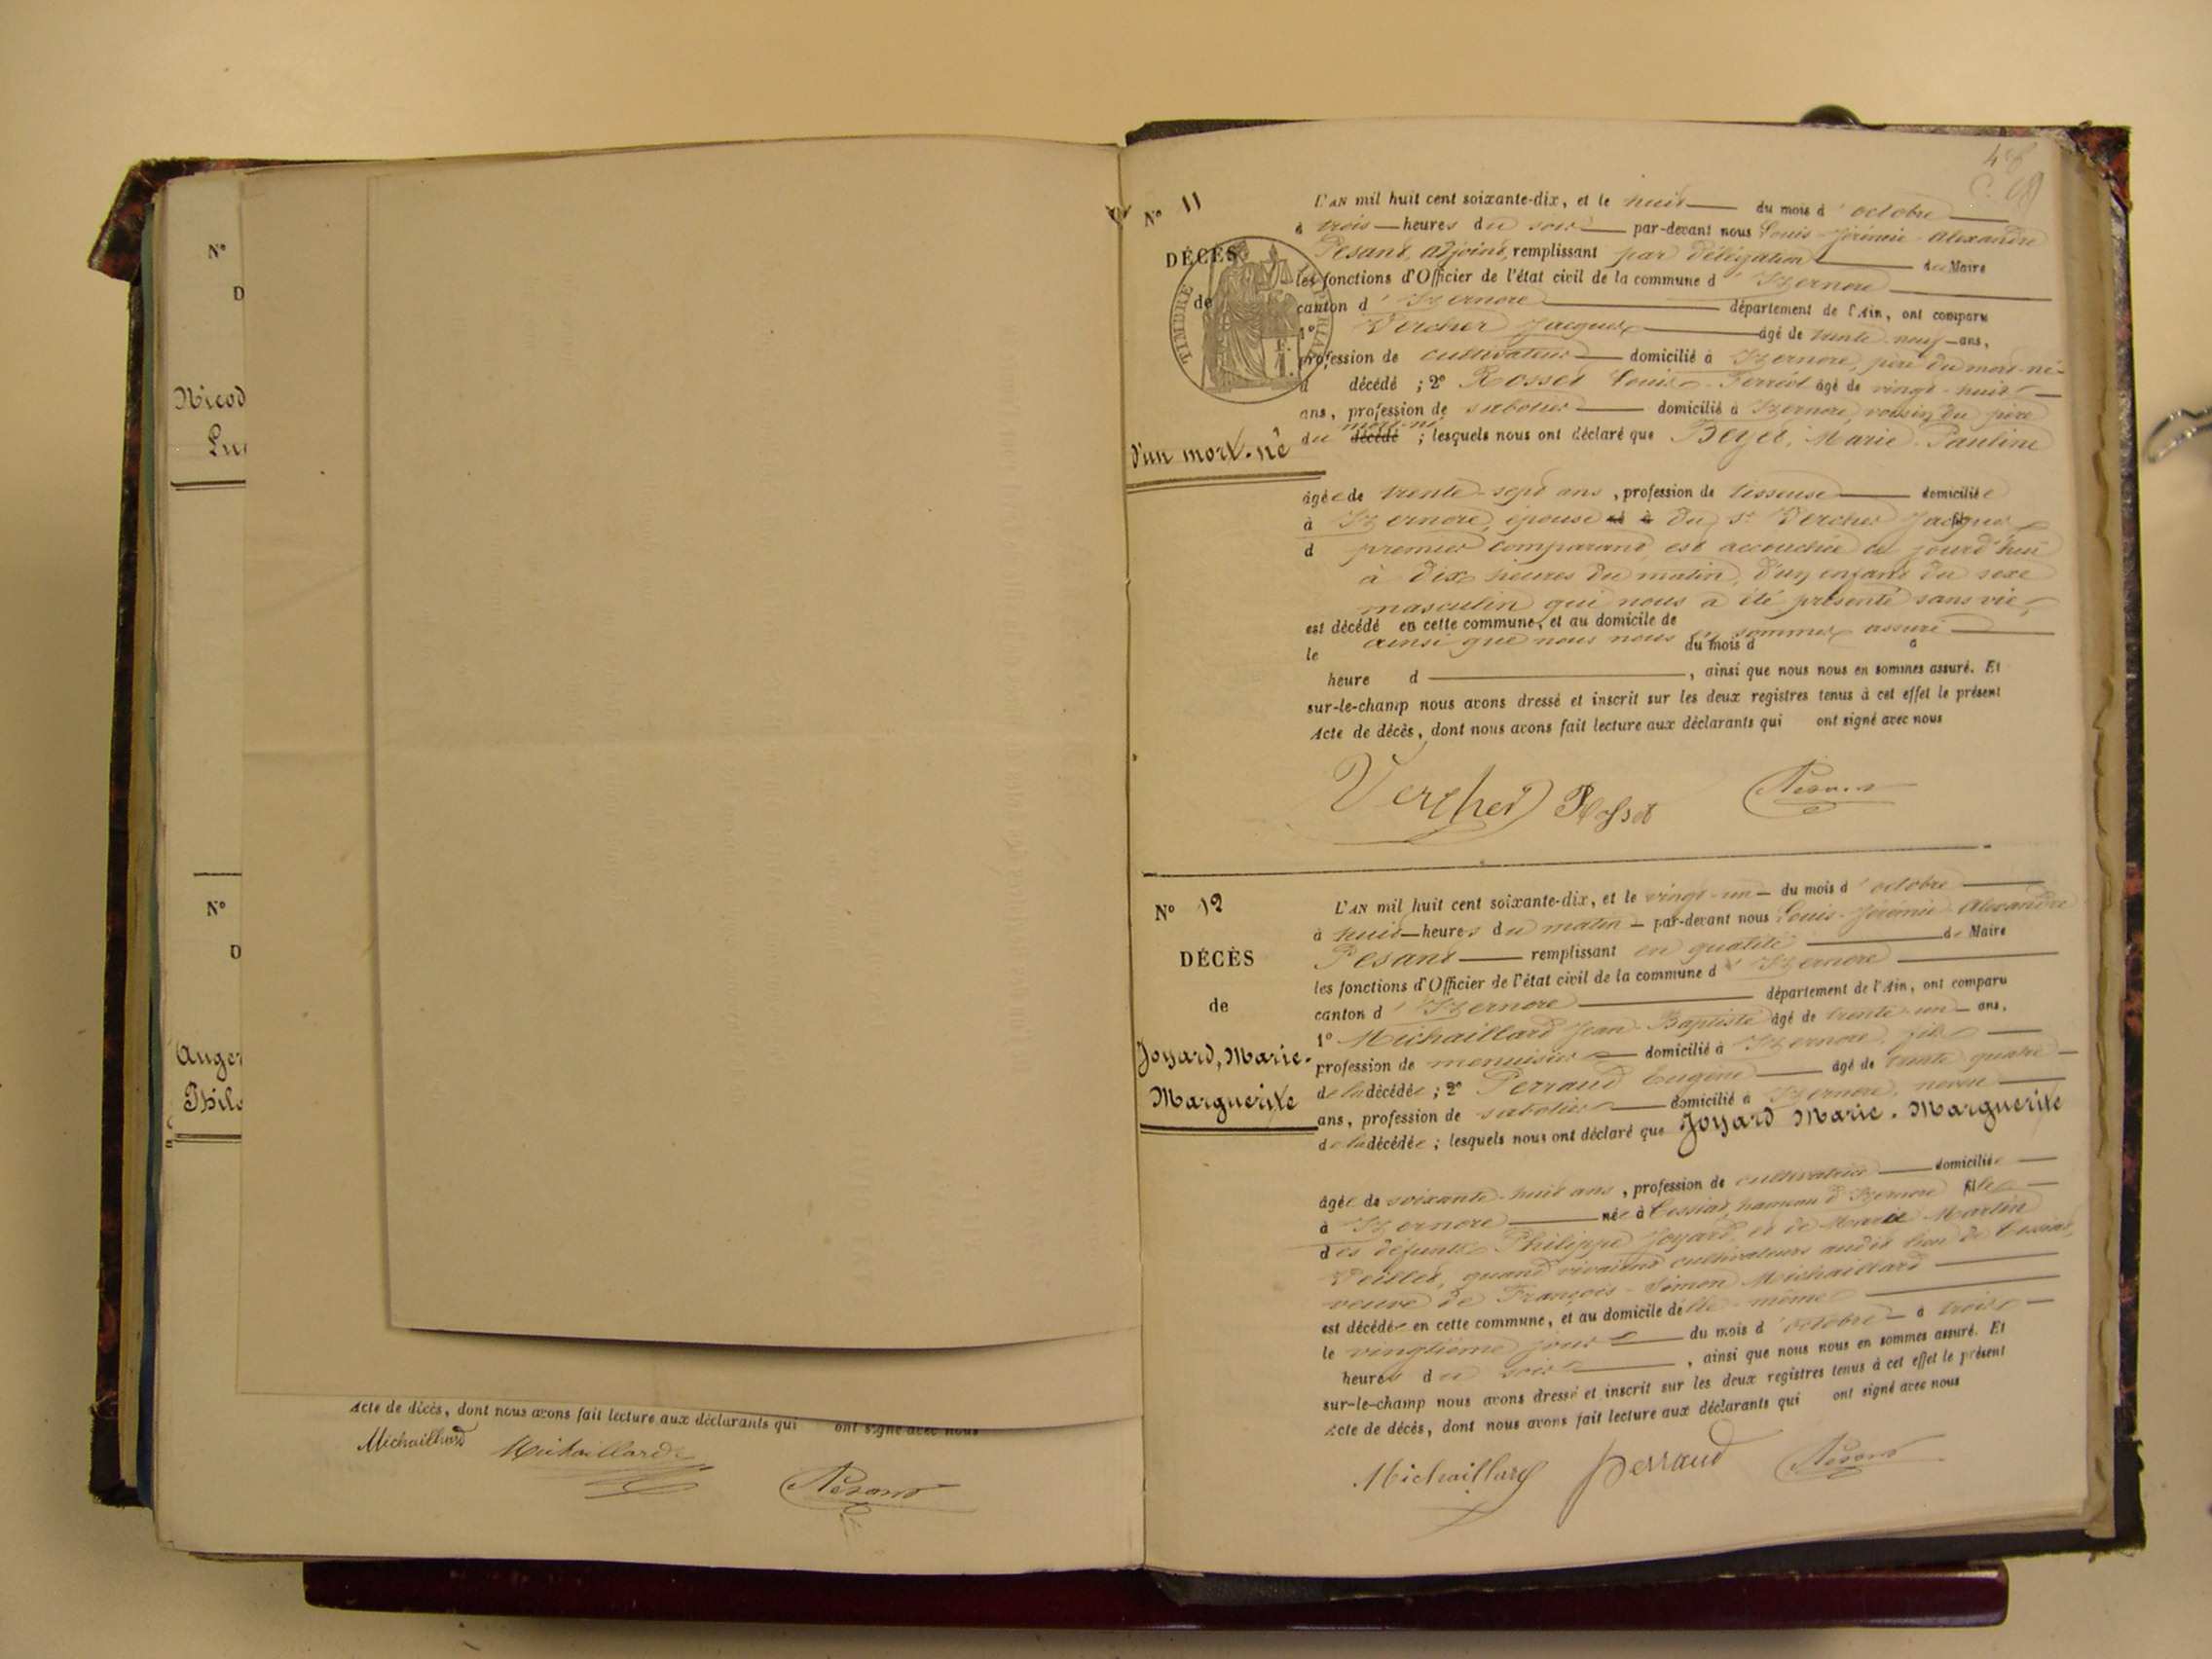 N°
D
Nicod
Lu
N°
D
Auger
Phil
Acte de décès, dont nous avons fait lecture aux déclarants qui ont signé avec nous
Michaillard Michaillard
Pesant
N° 11
DÉCÈS
de
TIMBRE IMPÉRIAL
d'un mort-né
L'AN mil huit cent soixante-dix, et le huit du mois d'octobre
à trois heures du soir par-devant nous Louis-Jérémie-Alexandre
Pesant, adjoint, remplissant par délégation de Maire
les fonctions d'Officier de l'état civil de la commune d'Izernore
canton d'Izernore département de l'Ain, ont comparu
1° Vercher Jacques âgé de trente-neuf ans,
profession de cultivateur domicilié à Izernore, père du mort-né
d décédé ; 2° Rosset Louis-Ferréol âgé de vingt-huit
ans, profession de sabotier domicilié à Izernore, voisin du père
du décédé mort-né ; lesquels nous ont déclaré que Beyet, Marie-Pauline
âgée de trente-sept ans, profession de tisseuse domiciliée
à Izernore, épouse né à du sr Vercher Jacques
d premier comparant est accouchée ce jourd'hui
à dix heures du matin, d'un enfant du sexe
masculin qui nous a été présenté sans vie,
est décédé en cette commune, et au domicile de
ainsi que nous nous en sommes assuré
le du mois d à
heure d , ainsi que nous nous en sommes assuré. Et
sur-le-champ nous avons dressé et inscrit sur les deux registres tenus à cet effet le présent
Acte de décès, dont nous avons fait lecture aux déclarants qui ont signé avec nous
Vercher Rosset Pesant
N° 12
DÉCÈS
de
Joyard, Marie-
Marguerite
L'AN mil huit cent soixante-dix, et le vingt-un du mois d'octobre
à huit heures du matin par-devant nous Louis-Jérémie-Alexandre
Pesant remplissant en qualité de Maire
les fonctions d'Officier de l'état civil de la commune d'Izernore
canton d'Izernore département de l'Ain, ont comparu
1° Michaillard Jean-Baptiste âgé de trente-un ans,
profession de menuisier domicilié à Izernore, fils
de la décédée ; 2° Perraud Eugène âgé de trente-quatre
ans, profession de sabotier domicilié à Izernore, neveu
de la décédée ; lesquels nous ont déclaré que Joyard Marie-Marguerite
âgée de soixante-huit ans, profession de cultivatrice domiciliée
à Izernore née à Cessiat, hameau d'Izernore fille
des défunts Philippe Joyard et de Marie Martin
Peillet, quand vivaient cultivateurs audit lieu de Cessiat,
veuve de François-Simon Michaillard
est décédée en cette commune, et au domicile d'elle-même
le vingtième jour du mois d'octobre à trois
heures du soir, ainsi que nous nous en sommes assuré. Et
sur-le-champ nous avons dressé et inscrit sur les deux registres tenus à cet effet le présent
Acte de décès, dont nous avons fait lecture aux déclarants qui ont signé avec nous
Michaillard Perraud Pesant